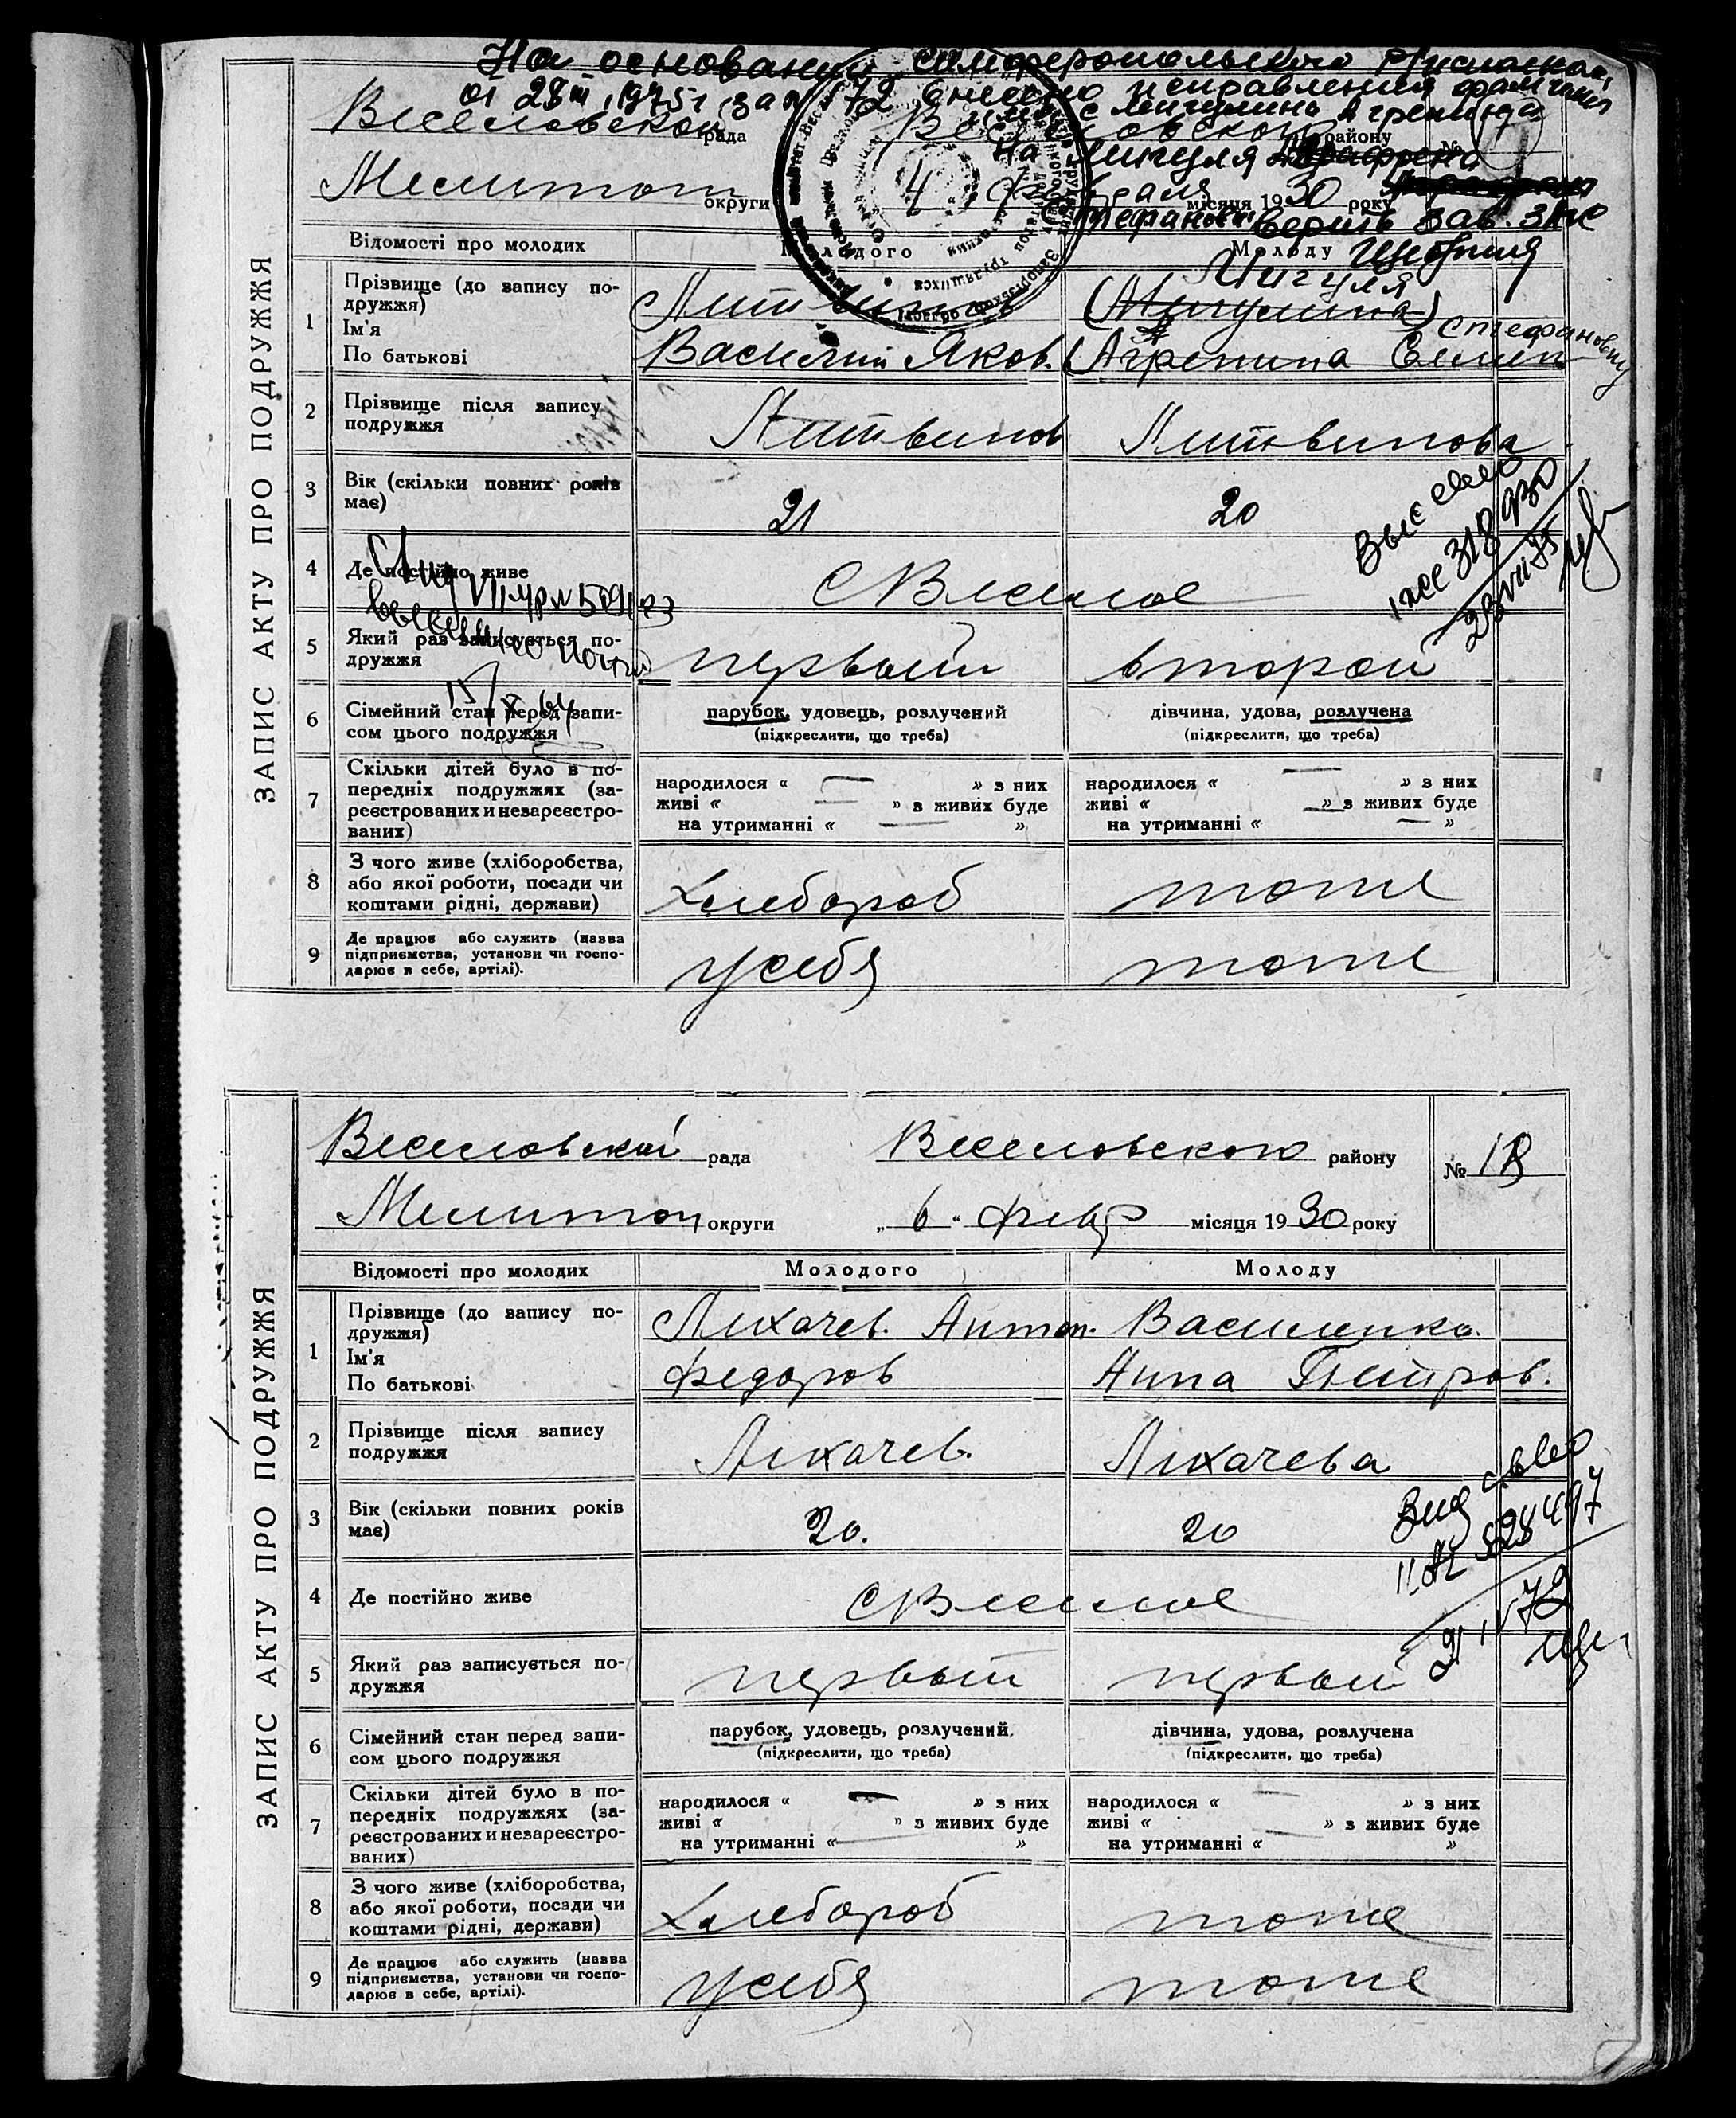 На основании Симферопольского
от 28 III 1975г за № 72 внесено исправления фамилия
с Мигулина Агрепина
На Лигуля
Стефановн верить Зав. ЗАГС
Веселовской рада Веселовского району №
Мелитоп округи 4 февраля місяця 1930 року
ЗАПИС АКТУ ПРО ПОДРУЖЖЯ
Відомості про молодих Молодого Молоду
Лигуля
1 Прізвище (до запису по-
дружжя) Литвинов (Мигулина)
Стефановну
Ім'я
По батькові Василий Яков. (Агрепина Семен
2 Прізвище після запису
подружжя Литвинов Литвинова
3 Вік (скільки повних років
має) 21 20
4 Де постійно живе С Веселое
5 Який раз записується по-
дружжя первый второй
6 Сімейний стан перед запи-
сом цього подружжя
парубок, удовець, розлучений дівчина, удова, розлучена
(підкреслити, що треба) (підкреслити, що треба)
7 Скільки дітей було в по-
передніх подружжях (за-
реєстрованих и незареєстро-
ваних)
народилося « — » з них народилося « — » з них
живі « — » з живих буде живі « — » з живих буде
на утриманні « — » на утриманні « — »
8 З чого живе (хліборобства,
або якої роботи, посади чи
коштами рідні, держави) Хлебороб тоже
9 Де працює або служить (назва
підприємства, установи чи госпо-
дарює в себе, артілі). у себя тоже
Веселовской рада Веселовского району № 18
Мелитоп округи „ 6 “ февр місяця 1930 року
ЗАПИС АКТУ ПРО ПОДРУЖЖЯ
Відомості про молодих Молодого Молоду
1 Прізвище (до запису по-
дружжя) Лихачев. Антон. Василенко.
Ім'я
По батькові Федоров Анна Петров.
2 Прізвище після запису
подружжя Лихачев. Лихачева
3 Вік (скільки повних років
має) 20. 20
Выд св во
II АП 528497
4 Де постійно живе С Веселое
5 Який раз записується по-
дружжя первый первый
6 Сімейний стан перед запи-
сом цього подружжя
парубок, удовець, розлучений. дівчина, удова, розлучена
(підкреслити, що треба) (підкреслити, що треба)
7 Скільки дітей було в по-
передніх подружжях (за-
реєстрованих и незареєстро-
ваних)
народилося « — » з них народилося « — » з них
живі « » з живих буде живі « — » з живих буде
на утриманні « — » на утриманні « »
8 З чого живе (хліборобства,
або якої роботи, посади чи
коштами рідні, держави) Хлебороб тоже
9 Де працює або служить (назва
підприємства, установи чи госпо-
дарює в себе, артілі). у себя тоже